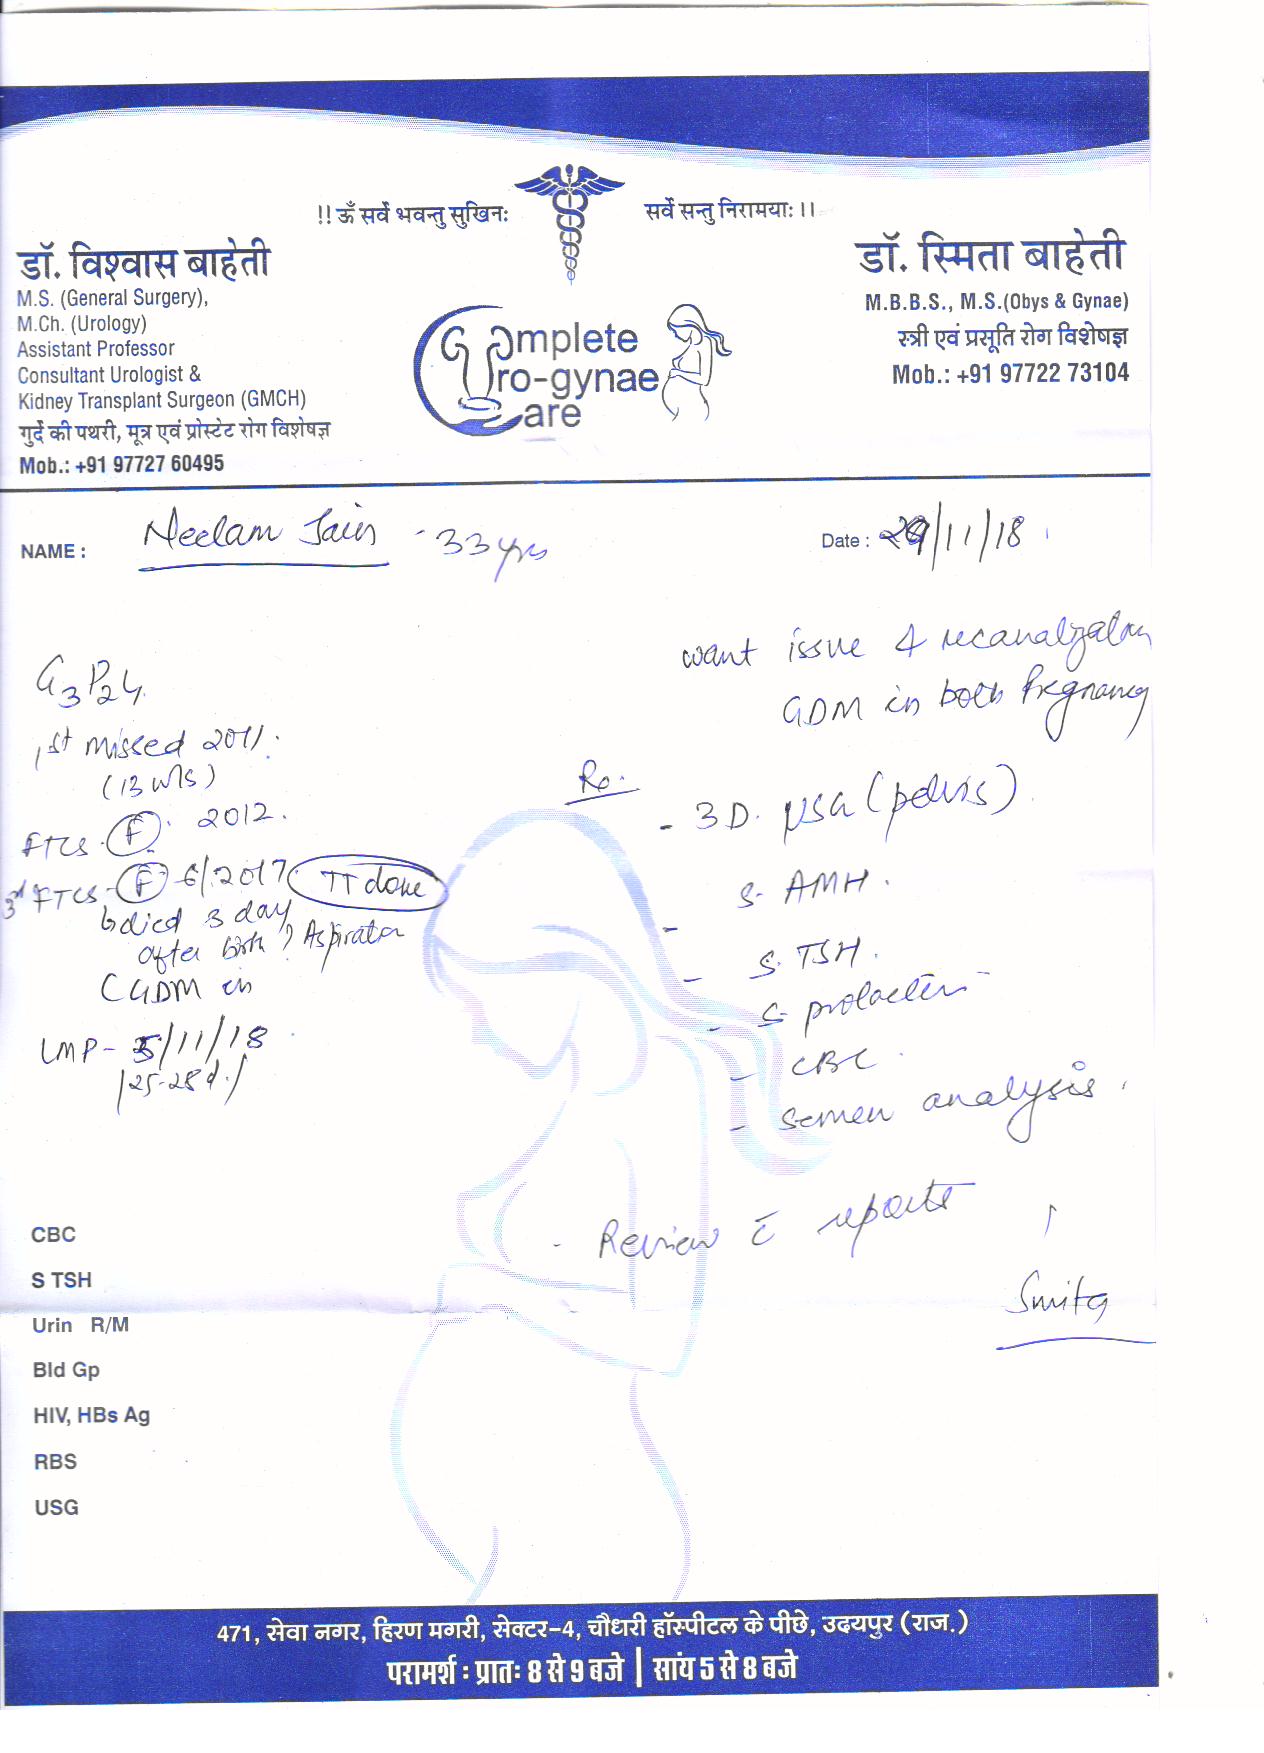 !! ॐ सर्वे भवन्तु सुखिनः
सर्वे सन्तु निरामयाः ।।
डॉ. विश्वास बाहेती
M.S. (General Surgery),
M.Ch. (Urology)
Assistant Professor
Consultant Urologist &
Kidney Transplant Surgeon (GMCH)
गुर्दे की पथरी, मूत्र एवं प्रोस्टेट रोग विशेषज्ञ
Mob.: +91 97727 60495
Complete
Uro-gynae
Care
डॉ. स्मिता बाहेती
M.B.B.S., M.S.(Obys & Gynae)
स्त्री एवं प्रसूति रोग विशेषज्ञ
Mob.: +91 97722 73104
NAME : Neelam Jain - 33 yrs
Date : /11/18
G3P2
1st missed 2011.
(13 wks)
FTCS - F. 2012.
3rd FTCS - F 6/2017 TT done
died 3 day
after birth ? Aspiration
GDM in
LMP - 5/11/18
/25-28d./
want issue recanalization
GDM in both Pregnancy
- 3D. USG (pelvis)
- S. AMH.
- S. TSH.
- S. prolactin
- CBC.
- Semen analysis.
- Review c̄ reports
Smita
CBC
S TSH
Urin R/M
Bld Gp
HIV, HBs Ag
RBS
USG
471, सेवा नगर, हिरण मगरी, सेक्टर-4, चौधरी हॉस्पीटल के पीछे, उदयपुर (राज.)
परामर्श : प्रातः 8 से 9 बजे | सांय 5 से 8 बजे